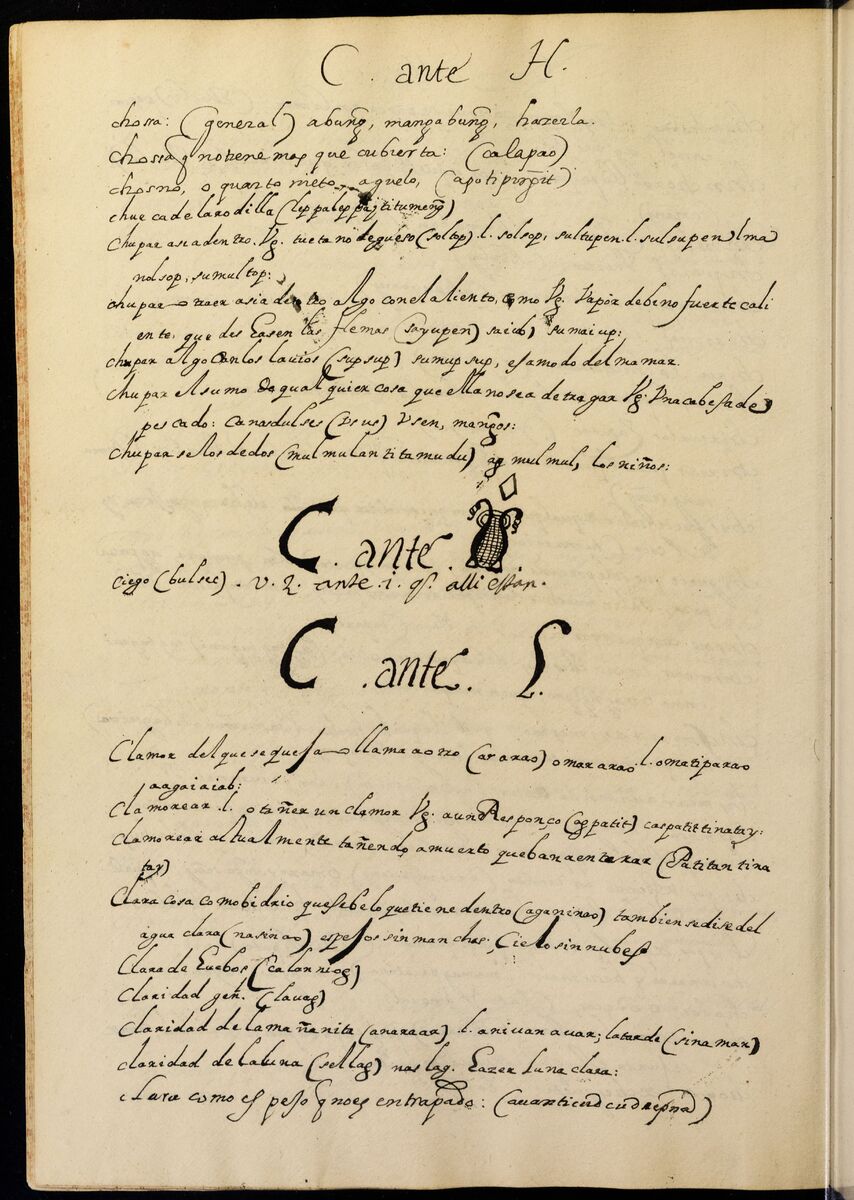 C. ante H.
chossa: (general) abung̃, mangabung̃, hazerla.
chossa q̃ notiene mas que cubierta: (calapao)
chosno, o quarto nieto, aguelo, (apo ti ping̃it)
chueca de la rodilla (lippalippa, titumeng̃)
chupar asia dentro. Vg. tuetano de queso (soltop) .l. solsop, sultupen .l. sulsupen lma
nolsop, sumultop:
chupar o traer asia dentro algo con el aliento, como Vg. Vapor de bino fuerte cali
ente, que des hasen las flemas (sayupen) saiub, sumaiup:
chupar algo con los lavios (supsup) sumupsup, es a modo del mamar.
chupar el sumo de qualquier cosa que ella no sea de tragar Vg. Vna cabesa de
pescado: canasdulses (Vsus) Vsen, mang̃os:
chuparse los dedos (mulmulan ti tamudu) ag mulmul, los niños:
C. ante.
ciego (bulsec). v. 2. ante .i. q̃ alli estan.
C. ante. L.
Clamor del que se quesa o llama a otro (ar arao) omararao .l. omatiparao
aagaiaiab:
Clamorear .l. o tañer un clamor Vg. a un Responço (ag patit) cas patit tinatay:
clamorear actualmente tañendo a muerto que ban a enterrar (Patitan tina
tay)
Clara cosa como bidrio que se be lo que tiene dentro (aganinao) tambien se dise del
agua clara (nasinao) espesos sin manchas: Cielo sin nubes
Clara de huebos (calanniog)
Claridad geñ. (lavag)
Claridad de la mañanita (anaraar) .l. anivanavar; la tarde (sinamar)
claridad de la luna (sellag) naslag. hazer luna clara:
claro como espeso q̃ no es entrapado: